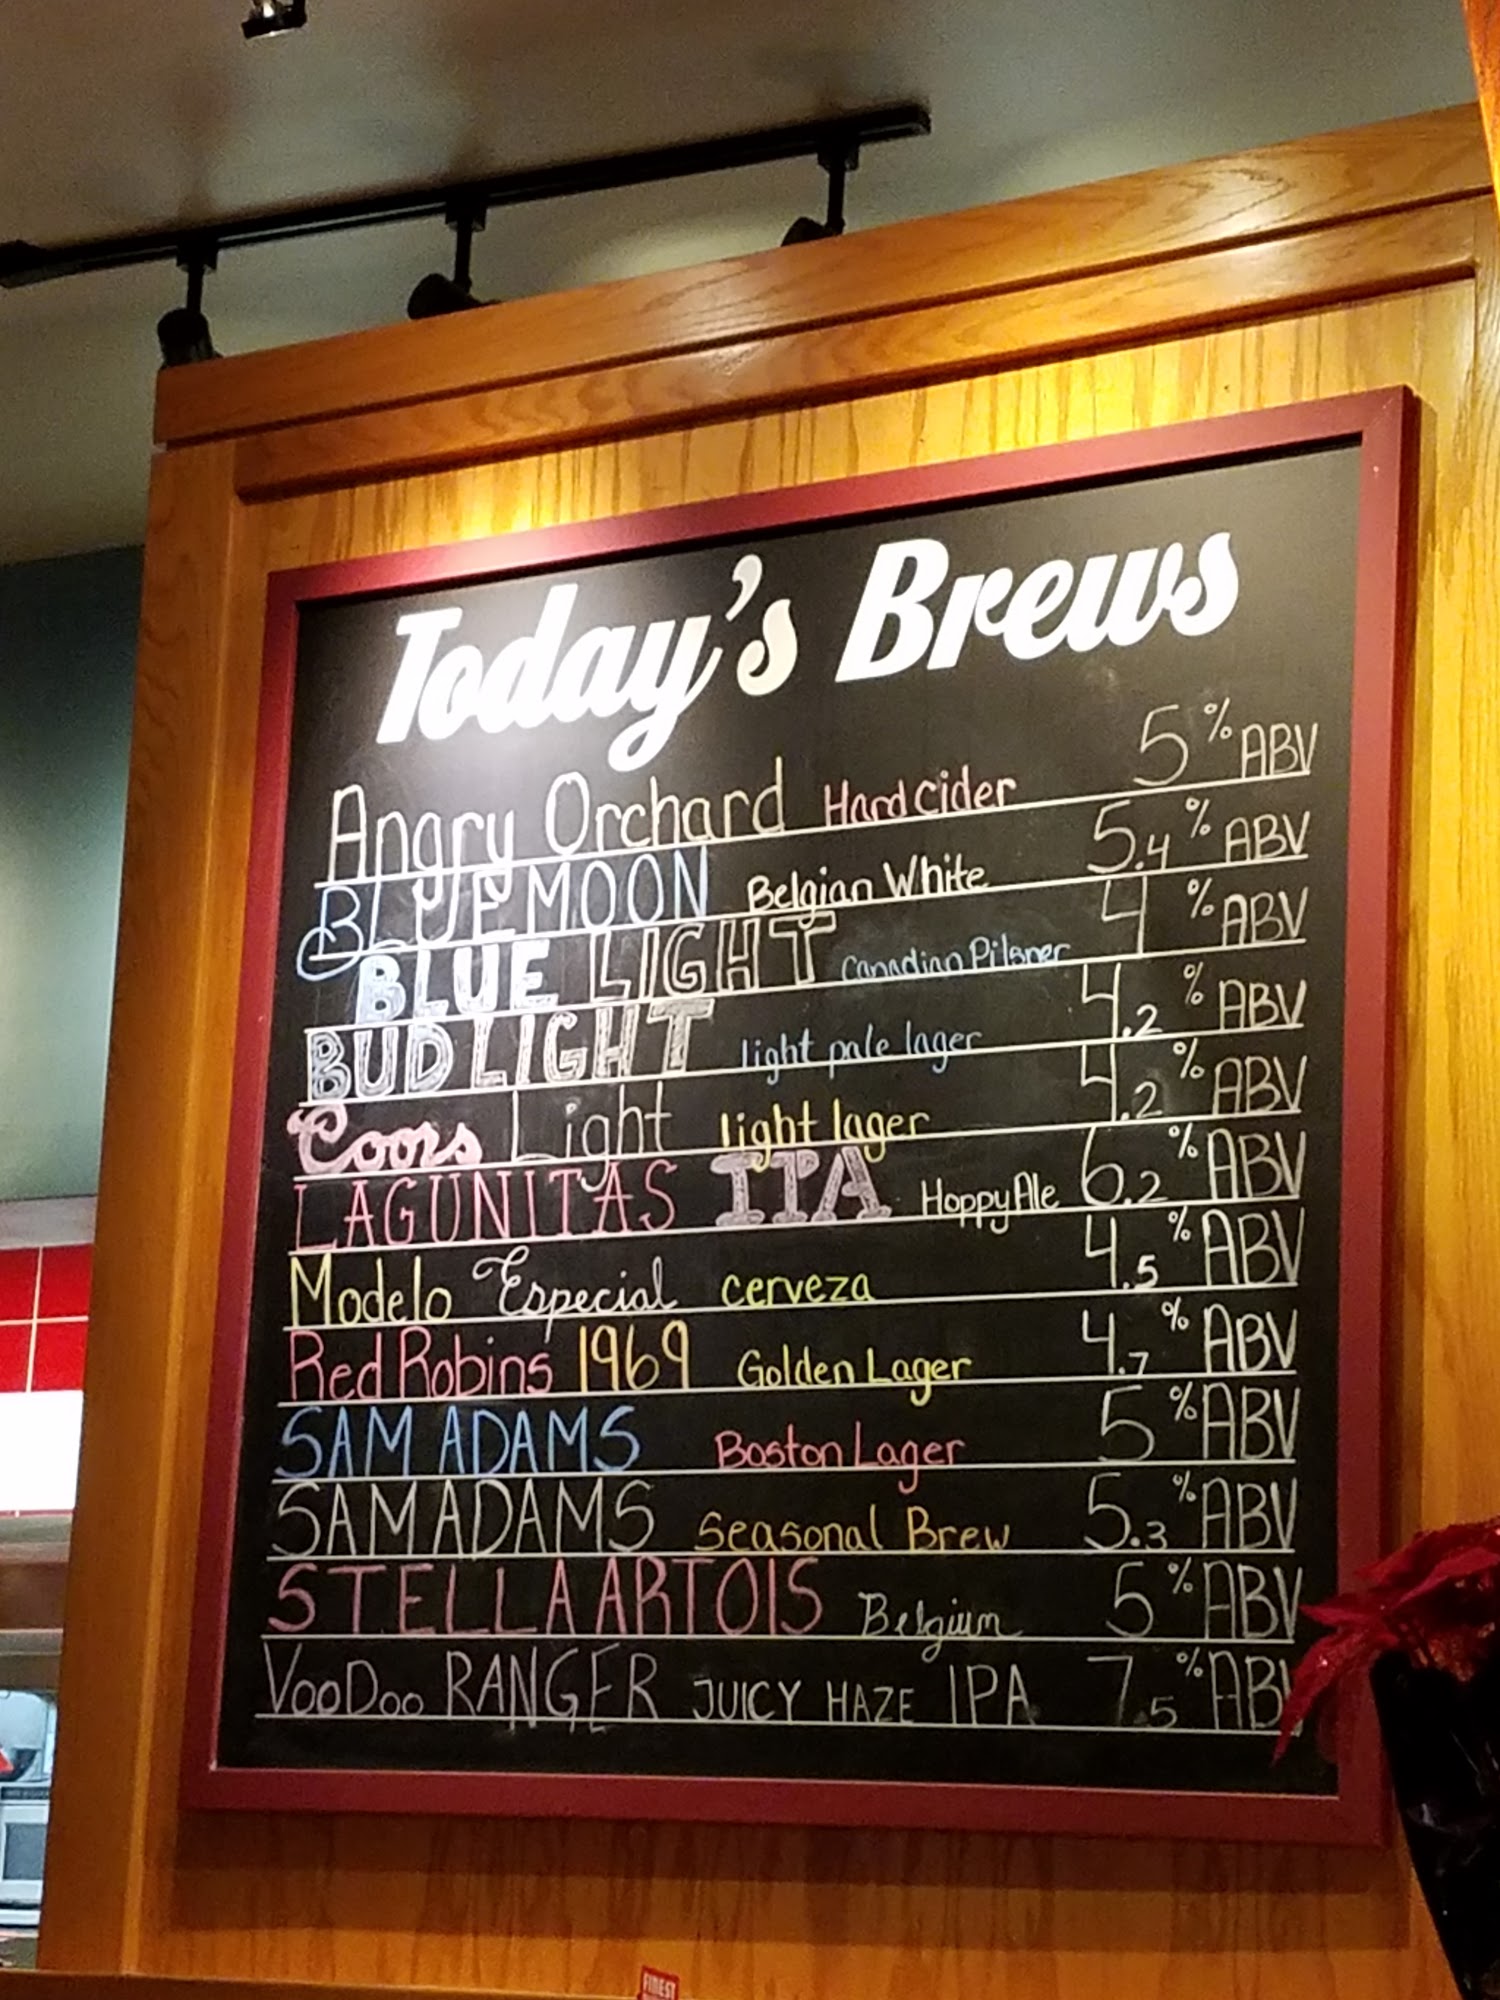 Today's Brews
Angry Orchard Hard Cider 5% ABV
BLUE MOON Belgian White 5.4% ABV
BLUE LIGHT Canadian Pilsner 4% ABV
BUD LIGHT light pale lager 4.2% ABV
Coors Light light lager 4.2% ABV
LAGUNITAS IPA Hoppy Ale 6.2% ABV
Modelo Especial cerveza 4.5% ABV
Red Robins 1969 Golden Lager 4.7% ABV
SAM ADAMS Boston Lager 5% ABV
SAM ADAMS Seasonal Brew 5.3% ABV
STELLA ARTOIS Belgium 5% ABV
VooDoo RANGER JUICY HAZE IPA 7.5% ABV
FINEST